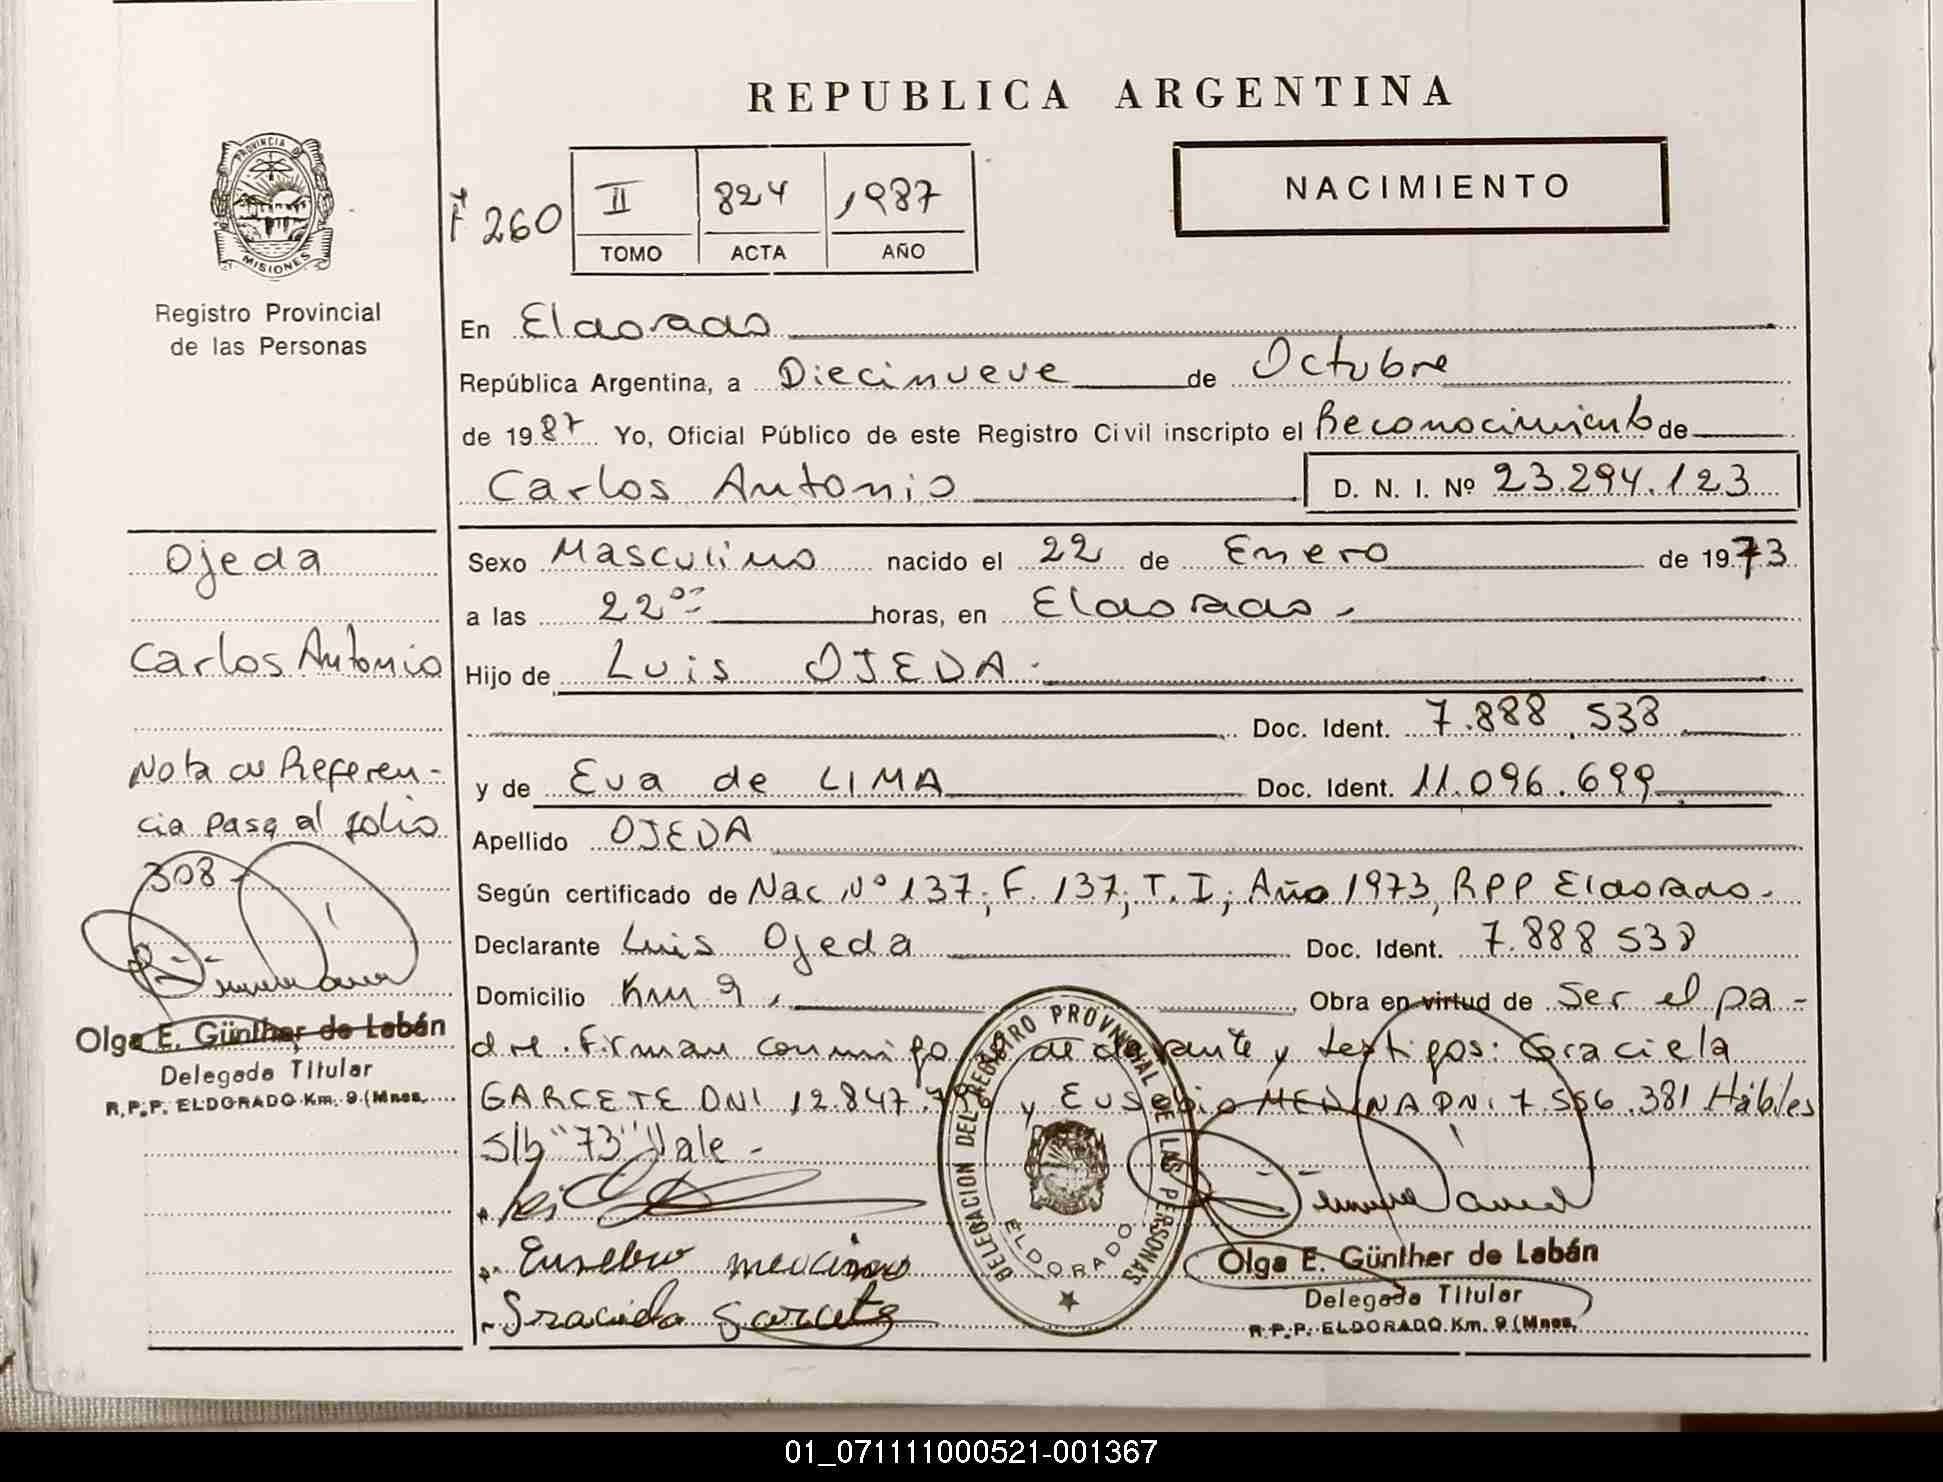 REPUBLICA ARGENTINA
PROVINCIA D
MISIONES
Registro Provincial
de las Personas
F 260
II 824 1987
TOMO ACTA AÑO
NACIMIENTO
En Eldorado
República Argentina, a Diecinueve de Octubre
de 1987 Yo, Oficial Público de este Registro Civil inscripto el Reconocimiento de
Carlos Antonio D. N. I. Nº 23.294.123
Sexo Masculino nacido el 22 de Enero de 1973
a las 22 00 horas, en Eldorado.
Hijo de Luis OJEDA.
Doc. Ident. 7.888.538
y de Eva de LIMA Doc. Ident. 11.096.699
Apellido OJEDA
Según certificado de Nac Nº 137; F. 137; T. I; Año 1973, RPP Eldorado.
Declarante Luis Ojeda Doc. Ident. 7.888 538
Domicilio Km 9, Obra en virtud de Ser el pa-
dre. Firman conmigo declarante y testigos: Graciela
GARCETE DNI 12.847. y Eusebio MEDINA DNI 7.556.381 Hábiles
S/b "73" Vale -
Eusebio medina
Graciela Garcete
Ojeda
Carlos Antonio
Nota de Referen-
cia pasa al folio
308-
Olga E. Günther de Labán
Delegada Titular
R.P.P. ELDORADO Km. 9 (Mnes.
DELEGACION DEL REGISTRO PROVINCIAL DE LAS PERSONAS
ELDORADO
Olga E. Günther de Labán
Delegada Titular
R.P.P. ELDORADO Km. 9 (Mnes.
01_071111000521-001367